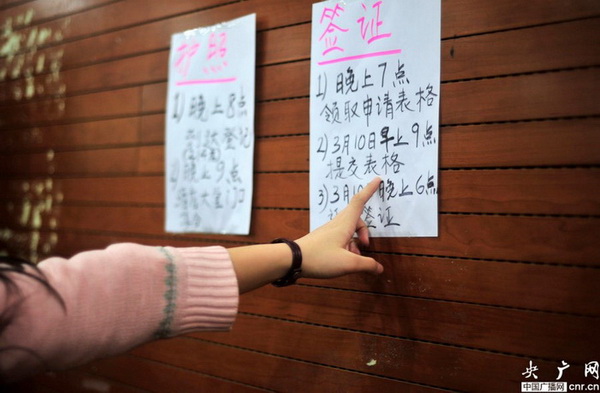 护照
1)晚上8点
登记
2)晚上9点
大堂门口
签证
1)晚上7点
领取申请表格
2)3月10日早上9点
提交表格
3)3月10 晚上6点
签证
央广网
中国广播网 cnr.cn